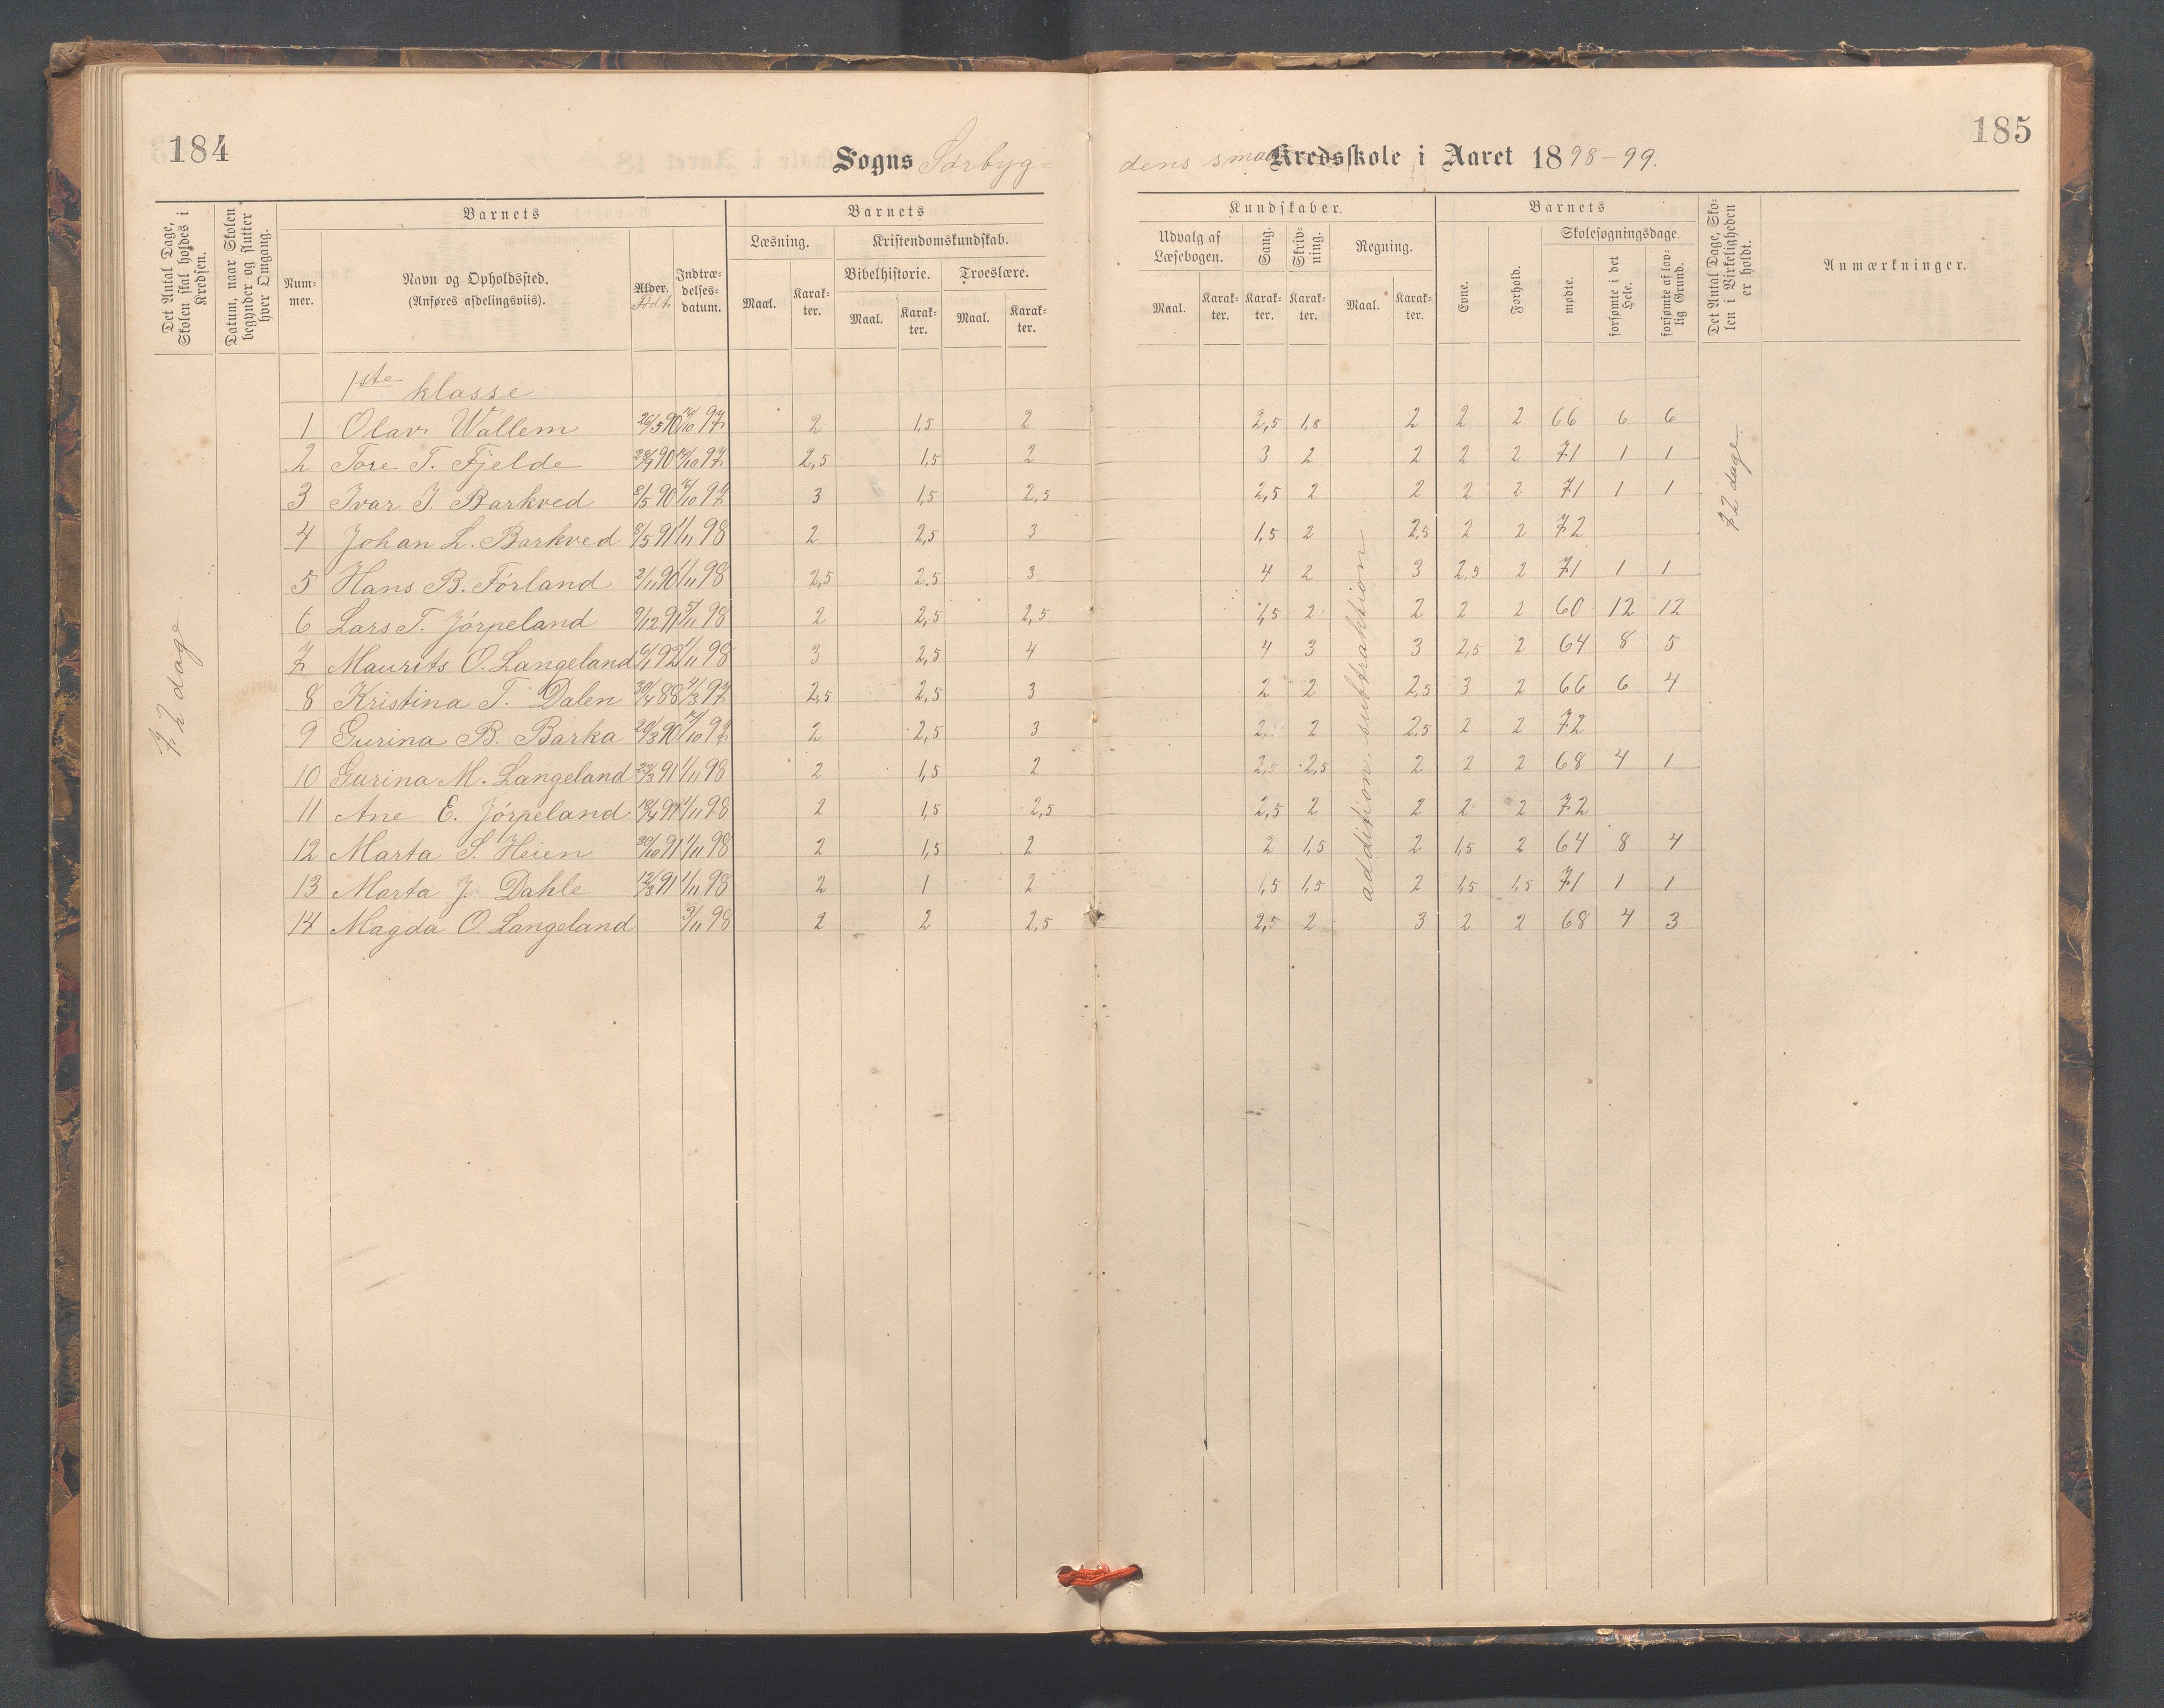 184
Sogns Sørbyg=
dens smaa Kredsskole i Aaret 1898-99.
185
Det Antal Dage, Skolen skal holdes i Kredsen.
Datum, naar Skolen begynder og slutter hver Omgang.
Barnets
Num-
mer.
Navn og Opholdssted.
(Anføres afdelingsviis).
Alder.
Født
Indtræ-
delses-
datum.
Barnets
Læsning.
Maal.
Karak-
ter.
Kristendomskundskab.
Bibelhistorie.
Troeslære.
Maal.
Karak-
ter.
Maal.
Karak-
ter.
Kundskaber.
Udvalg af
Læsebogen.
Maal.
Karak-
ter.
Sang.
Karak-
ter.
Skriv-
ning.
Karak-
ter.
Regning.
Maal.
Karak-
ter.
Barnets
Evne.
Forhold.
Skolesøgningsdage.
mødte.
forsømte i det Hele.
forsømte af lov-
lig Grund.
Det Antal Dage, Sko-
len i Virkeligheden
er holdt.
Anmærkninger.
1ste klasse
1 Olav Wallem 26/5 90 14/10 97 2 1,5 2 2,5 1,8 2 2 2 66 6 6
2 Tore T. Fjelde 28/9 90 14/10 97 2,5 1,5 2 3 2 2 2 2 71 1 1
3 Ivar J. Barkved 8/5 90 16/10 97 3 1,5 2,5 2,5 2 2 2 2 71 1 1
4 Johan L. Barkved 8/5 91 1/11 98 2 2,5 3 1,5 2 2,5 2 2 72
5 Hans B. Förland 2/11 90 1/11 98 2,5 2,5 3 4 2 3 2,5 2 71 1 1
6 Lars T. Jörpeland 9/12 91 5/11 98 2 2,5 2,5 1,5 2 2 2 2 60 12 12
7 Maurits O. Langeland 6/1 92 1/11 98 3 2,5 4 4 3 3 2,5 2 64 8 5
8 Kristina T. Dalen 30/4 88 4/3 97 2,5 2,5 3 2 2 2,5 3 2 66 6 4
9 Gurina B. Barka 20/3 90 14/10 97 2 2,5 3 2 2 2,5 2 2 72
10 Gurina M. Langeland 23/3 91 1/11 98 2 1,5 2 2,5 2,5 2 2 2 68 4 1
11 Ane E. Jörpeland 18/4 91 1/11 98 2 1,5 2,5 2,5 2 2 2 2 72
12 Marta S. Heien 30/10 91 1/11 98 2 1,5 2 2 1,5 2 1,5 2 64 8 4
13 Marta J. Dahle 12/3 91 1/11 98 2 1 2 1,5 1,5 2 1,5 1,5 71 1 1
14 Magda O. Langeland 3/11 98 2 2 2,5 2,5 2 3 2 2 68 4 3
72 dage
addition, subtraktion
72 dage